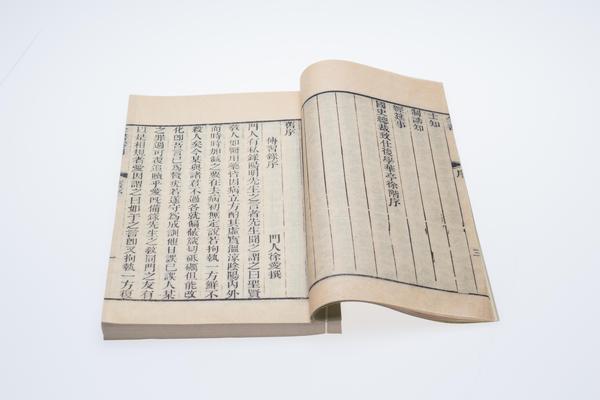 序
三
士知
制誥知
經筵事
國史總裁致仕後學華亭徐階序
舊序
傳習錄序
門人徐愛撰
門人有私錄陽明先生之言者先生聞之謂之曰聖賢
教人如醫用藥皆因病立方酌其虛實溫涼陰陽內外
而時時加減之要在去病初無定說若拘執一方鮮不
殺人矣今某與諸君不過各就偏蔽箴切砥礪但能改
化卽吾言已爲贅疣若遂守爲成訓他日誤己誤人某
之罪過可復追贖乎愛旣備錄先生之敎同門之友有
以是相規者愛因謂之曰如子之言卽又拘執一方復